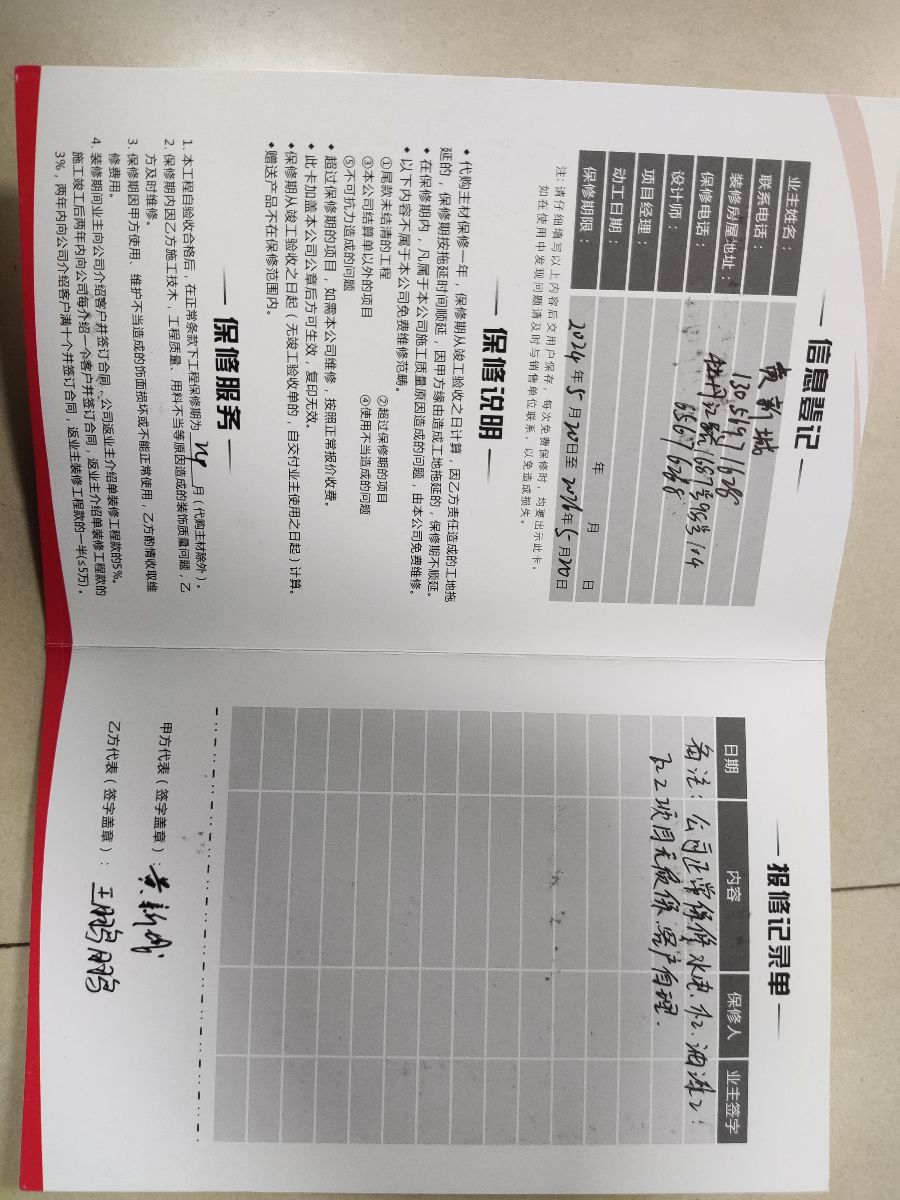 信息登记
业主姓名：黄新城
联系电话：13056971628
装修房屋地址：牡丹江路1687号98号104
保修电话：
设计师：
项目经理：
动工日期： 年 月 日
保修期限： 2024年5月20日至2026年5月20日
注：请仔细填写以上内容后交用户保存，每次免费保修时，均要出示此卡。
如在使用中发现问题请及时与销售单位联系，以免造成损失。
保修说明
◆代购主材保修一年，保修期从竣工验收之日计算，因乙方责任造成的工地拖
延的，保修期按拖延时间顺延，因甲方缘由造成工地拖延的，保修期不顺延。
◆在保修期内，凡属于本公司施工质量原因造成的问题，由本公司免费维修。
◆以下内容不属于本公司免费维修范畴。
①尾款未结清的工程 ②超过保修期的项目
③本公司结算单以外的项目 ④使用不当造成的问题
⑤不可抗力造成的问题
◆超过保修期的项目，如需本公司维修，按照正常报价收费。
◆此卡加盖本公司公章后方可生效，复印无效。
◆保修期从竣工验收之日起（无竣工验收单的，自交付业主使用之日起）计算。
◆赠送产品不在保修范围内。
保修服务
1. 本工程自验收合格后，在正常条款下工程保修期为 24 月（代购主材除外）。
2. 保修期内因乙方施工技术，工程质量、用料不当等原因造成的装饰质量问题，乙
方及时维修。
3. 保修期因甲方使用、维护不当造成的饰面损坏或不能正常使用，乙方酌情收取维
修费用。
4. 装修期间业主向公司介绍客户并签订合同、公司返业主介绍单装修工程款的5%。
施工竣工后两年内向公司每介绍一个客户并签订合同，返业主介绍单装修工程款的
3%，两年内向公司介绍客户满十个并签订合同，返业主装修工程款的一半(≤5万)。
报修记录单
日期 内容 保修人 业主签字
备注：公司正常保修水电.木工.油漆工：
瓦工项目无质保.客户自理.
甲方代表（签字盖章）：黄新城
乙方代表（签字盖章）：王鹏鹏